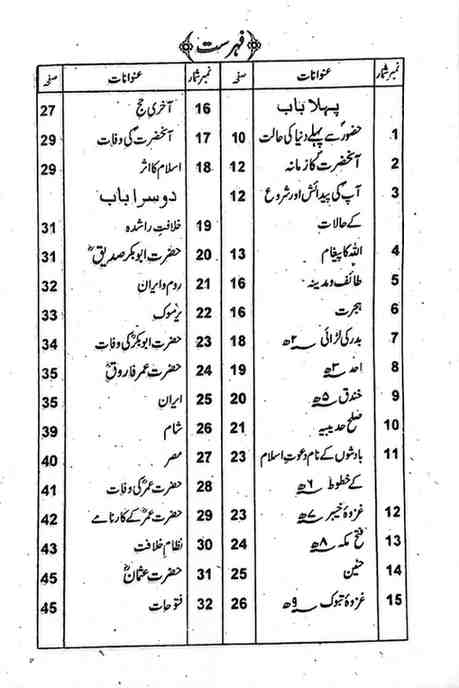 فہرست
نمبر شمار عنوانات صفحہ
پہلا باب
1 حضورؐ سے پہلے دنیا کی حالت 10
2 آنحضرتؐ کا زمانہ 12
3 آپؐ کی پیدائش اور شروع 12
کے حالات
4 اللہ کا پیغام 13
5 طائف و مدینہ 16
6 ہجرت 16
7 بدر کی لڑائی ۲ھ 18
8 احد ۳ھ 19
9 خندق ۵ھ 20
10 صلح حدیبیہ 21
11 بادشوں کے نام دعوتِ اسلام 23
کے خطوط ۶ھ
12 غزوۂ خیبر ۷ھ 23
13 فتح مکہ ۸ھ 24
14 حنین 25
15 غزوۂ تبوک ۹ھ 26
نمبر شمار عنوانات صفحہ
16 آخری حج 27
17 آنحضرتؐ کی وفات 29
18 اسلام کا اثر 29
دوسرا باب
19 خلافتِ راشدہ 31
20 حضرت ابوبکر صدیقؓ 31
21 روم و ایران 32
22 یرموک 33
23 حضرت ابوبکرؓ کی وفات 34
24 حضرت عمر فاروقؓ 35
25 ایران 35
26 شام 39
27 مصر 40
28 حضرت عمرؓ کی وفات 41
29 حضرت عمرؓ کے کارنامے 42
30 نظامِ خلافت 43
31 حضرت عثمانؓ 45
32 فتوحات 45